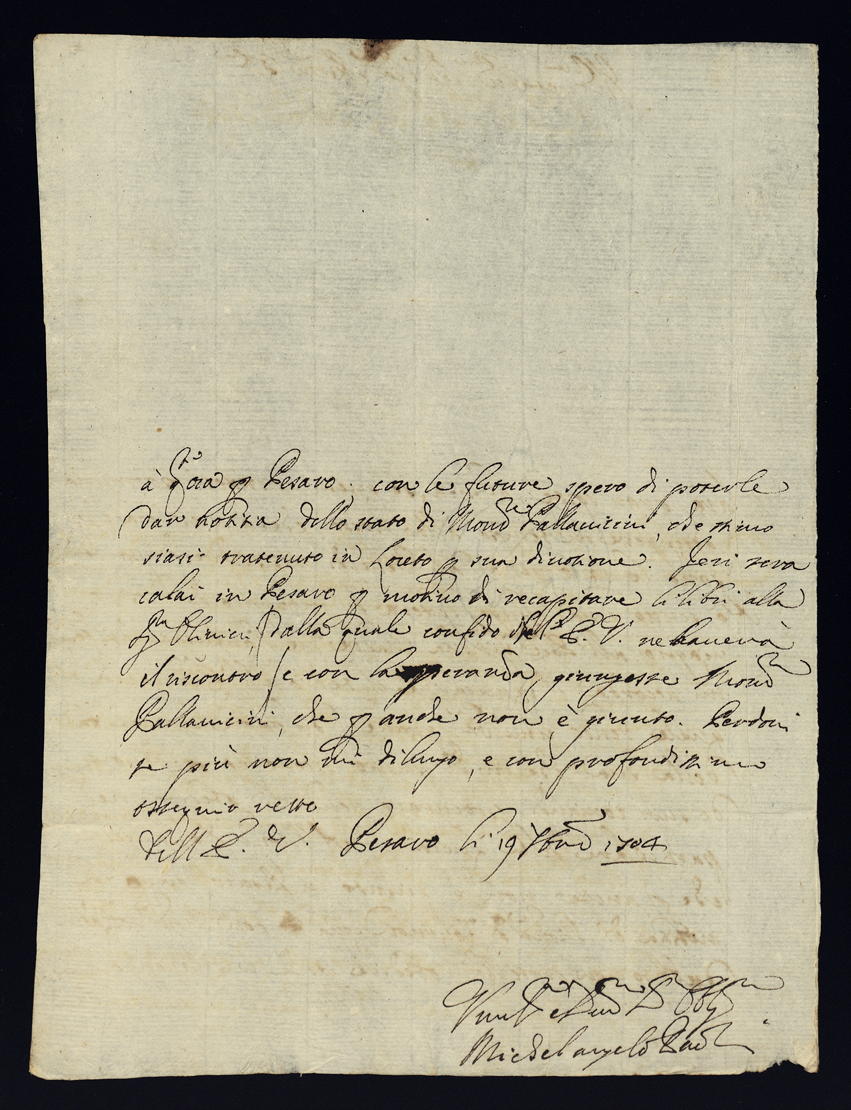 à
Pesaro. con le future spero di poterle
dar notitia dello stato di Pallavicini, che stimo
siasi tratenuto in Loreto p sua divotione. Jeri sera
calai in Pesaro p motivo di recapitare li libri alla
Olivieri, dalla quale confido che E. V. ne haverà
il riscontro e con la speranza, giungesse
Pallavicini, che p anche non è giunto. Perdoni
se più non mi dilungo, e con profondissimo
ossequio resto
Dell E. V. Pesaro li 19 1704
Michelangelo